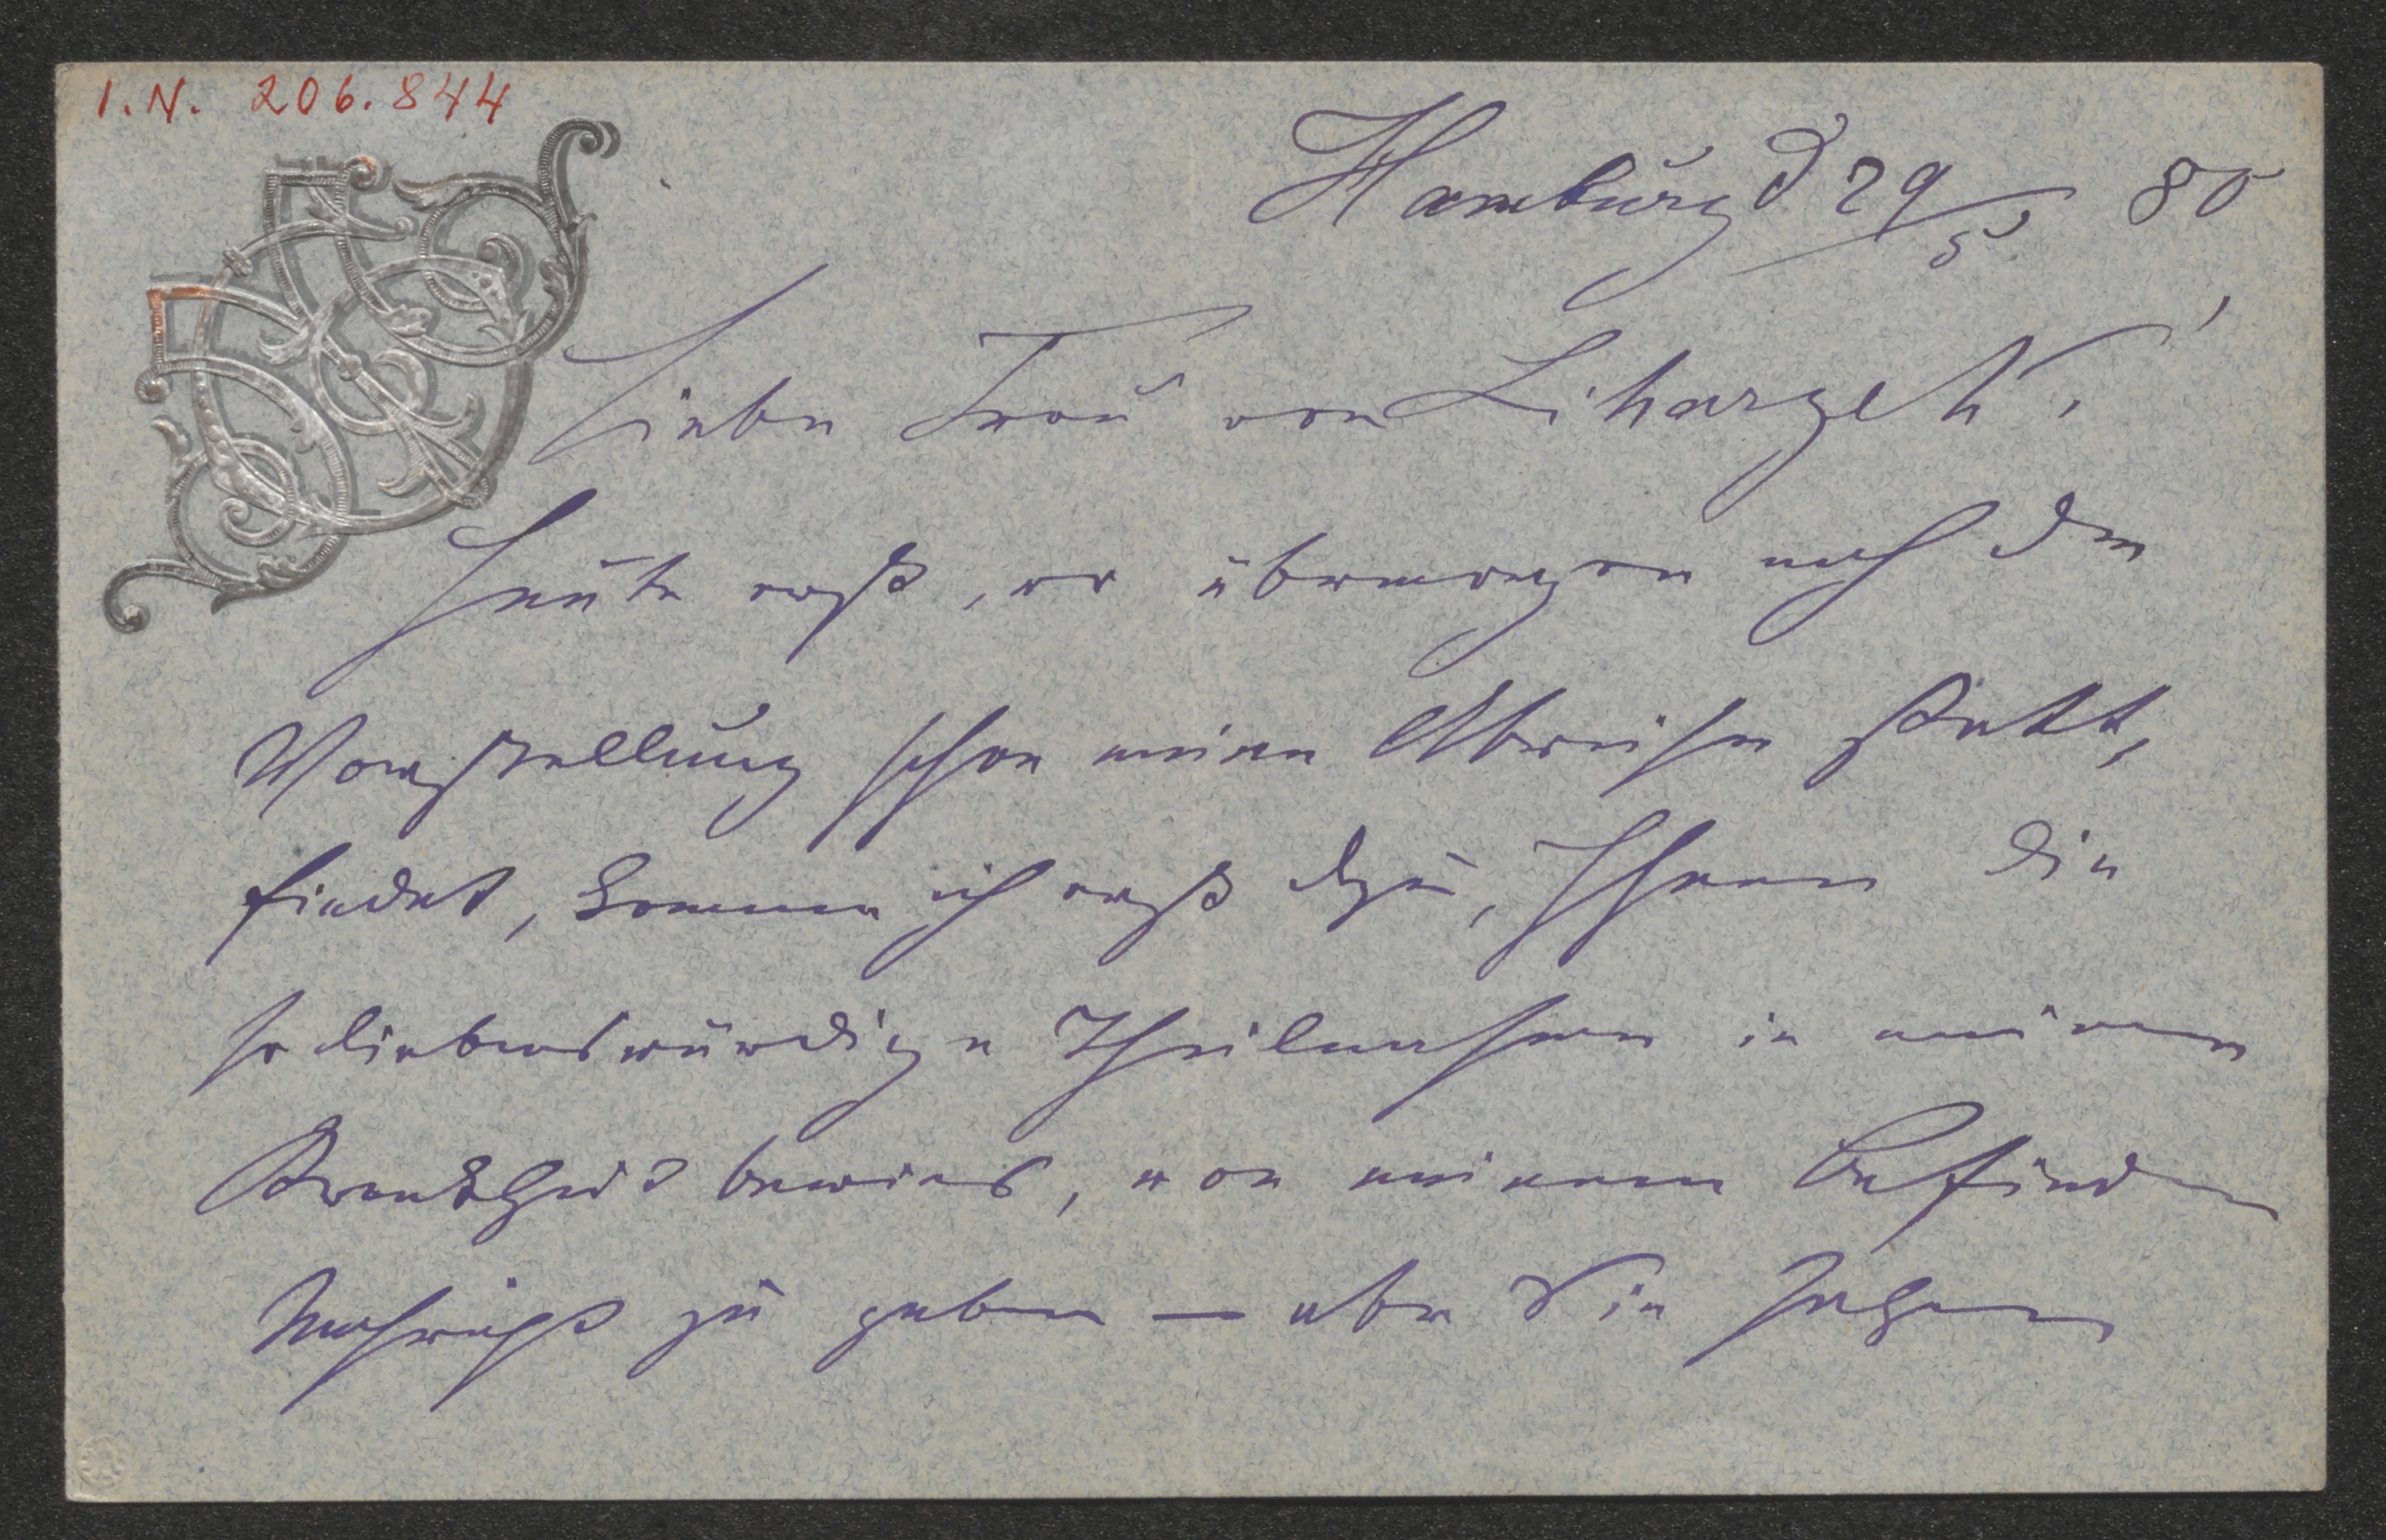 I.N. 206.844
Hamburg d 29/5 80
Liebe Frau von Liharzek!
Heute erst, wo übermorgen nach der
Vorstellung schon meine Abreise statt,
findet, komme ich erst dazu, Ihnen die
so liebenswürdige Theilnahme in meiner
Krankheit bewies, von meinem Befinden
Nachricht zu geben — aber Sie